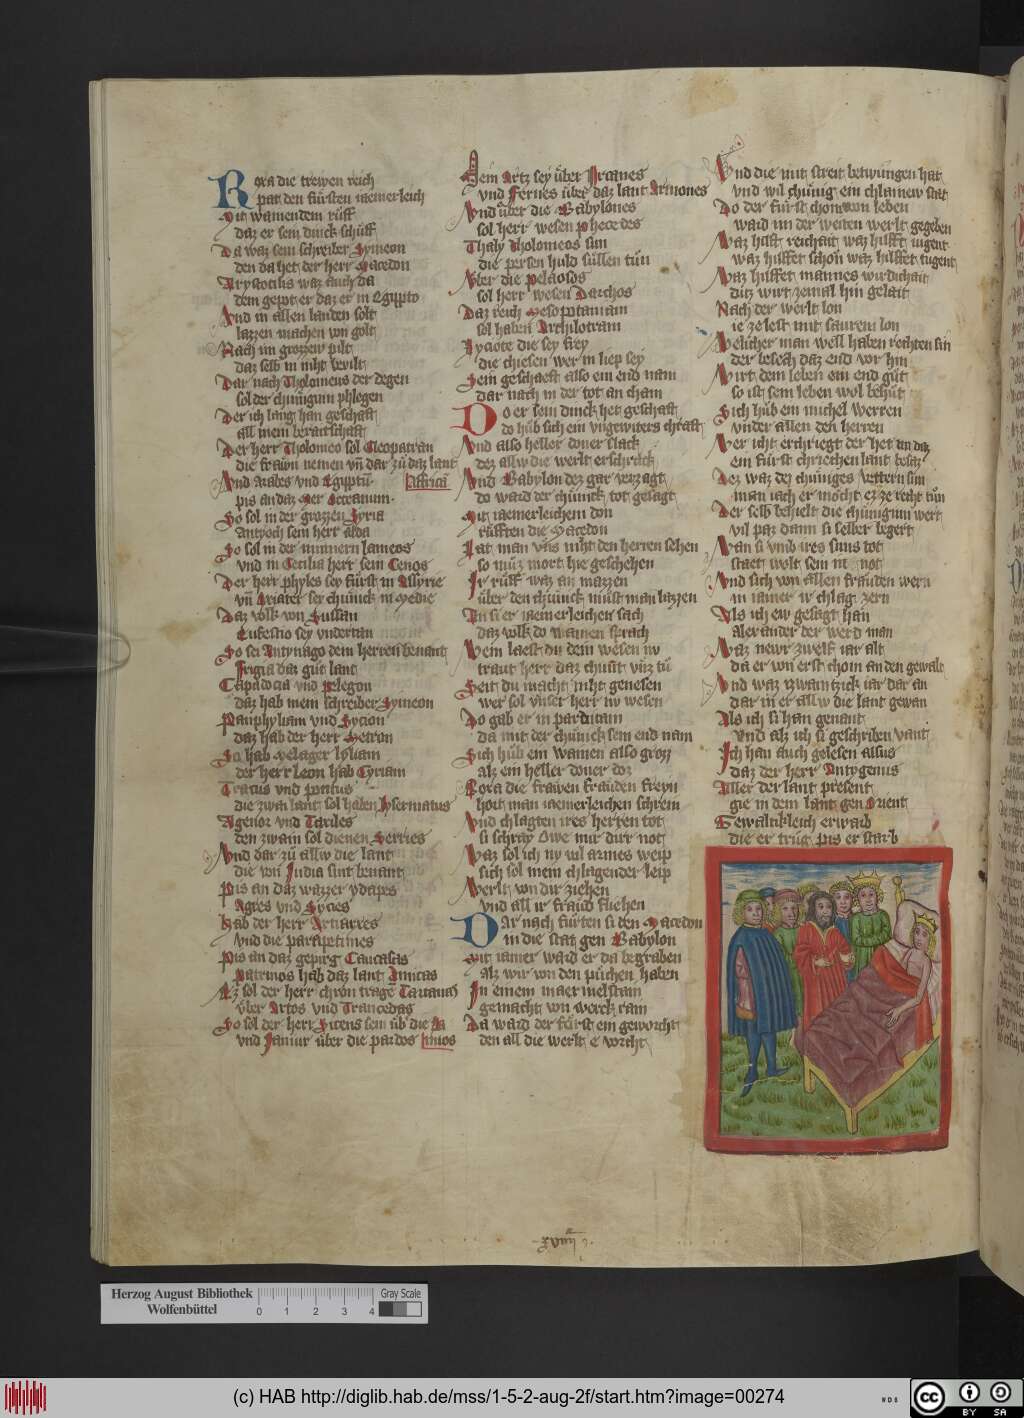 Rora die trewen reich
pat den fürsten iaemerleich
Mit wainendem rüff
daz er sein dinck schüff
Da waz sein schreiber Symeon
den da het der herr Macedon
Arystotilis waz auch da
dem gepot er daz er in Egippto
Vnd in allen landen solt
lazzen machen von golt
Nach im grozzew pilt
daz selb in niht bevilt
Dar nach Tholomeus der degen
sol der chünigum phlegen
Der ich lang han geschaft
all mein beraitschaft
Der herr Tholomeo sol Cleopatran
die frawn nemen vnd dar zů daz lant
Vnd Arabes vnd Egiptū Affricū
pis an daz Mer Occeanum
So sol in der grozzen Syria
Antyoch sein herr alda
So sol in der innnern
vnd in Cecilia herr sein Cenos
Der herr phyles sey fürst in Assyrie
vn̄ Oriater sei chünick in Medie
Daz volk von Sussan
sey vndertan
So sei Antynago dem herren benant
Frigia daz gut lant
Capadocia vnd pelegon
daz hab mein schreiber Symeon
Pamphyliam vnd Lycion
daz hab der herr Metron
So hab Melager lybiam
der herr Leon hab Cyriam
Tracus vnd pontus
die zwai lant sol haben Lysematus
Agenor vnd Taxiles
den zwain sol dienen Serries
Vnd dar zů allw die lant
die von India sint benant
Pis an daz wazzer ydaspes
Agres vnd Sycies
Hab der herr
vnd die parapetimes
Pis an daz gepirg Caucasas
patrinos hab daz lant
Ez sol der herr chron trage Tauanas
vber Artos vnd Trancedas
So sol der herr Sitens sein üb die
vnd Januir über die pardos
Dein Artz sey über Ircanes
vnd Fernes über daz lant Armones
Vnd über die Babylones
sol herr wesen phecedes
Thaly Tholomeos sun
die persen huld süllen tůn
Vber die pelaosos
sol herr wesen Darchos
Daz reich Mesopotamiam
sol haben Archilotram
die sey frey
die chiesen wer in liep sey
Sein geschaeft also ein end nam
dar nach in der tot an cham
Do er sein dinck het geschaft
do hůb sich ein vngewiters chraft
Vnd also heller doner slack
dez allw die werlt erschrack
Vnd Babylon dez gar verzagt
do ward der chünick tot gesagt
Mit iaemerleichem don
rüfften die Macedon
Lat man vns niht den herren sehen
so můz mort hie geschehen
Ir rüff waz an mazzen
über den chünick müst man lazzen
In si er iaemerleichen sach
daz volk do wainen sprach
Wem laest du dein wesen nv
traut herr daz chunt vnz tů
Seit du macht niht genesen
wer sol vnser herr nv wesen
Do gab er in parducam
da mit der chünick sein end nam
Sich hůb ein wainen also grozz
alz ein heller doner doz
Rora die frawen frauden freyn
hort man iaemerleichen schrein
Vnd chlagten ires herren tot
si schray Owe mir dirr not
Waz sol ich nv vil armes weip
sich sol mein chlagender leip
Werlt von dir ziehen
vnd all ir fraud fliehen
Dar nach fürten si den Macedon
in die stat gen Babylon
Mit iamer ward er da begraben
Alz wir von den püchen haben
In einem maermelstain
gemacht von werck rain
Da ward der fürst ein geworcht
den all die werlt e vorcht
Vnd die mit streit betwungen hat
vnd wil chünig ein chlainew stat
Do der fürst chom von leben
ward im der weiten werlt gegeben
Waz hilft reichait waz hilfft iugent
waz hilffet schön waz hilffet tugent
Waz hilffet mannes wirdichait
ditz wirt zemal hin gelait
Nach der werlt lon
ie ze lest mit saurem lon
Welicher man well haben rechten sin
der besech daz end vor hin
Wirt dem leben ein end gůt
so ist sein leben wol behůt
Sich hůb ein michel werren
vnder allen den herren
Wer icht erchriegt der het an daz
ein fürst chriechen lant besaz
Dez waz dez chüniges vettern sun
man iach er mocht ez ze recht tůn
Der selb behielt die chüniginn wert
vil paz dann si selber begert
Wan si vmb ires suns tot
staet wolt sein in not
Vnd sich von allen frauden wern
in iamer ir chlag zern
Als ich ew gesagt han
alexander der werd man
Waz newr zwelf iar alt
da er von erst chom an den gewalt
Vnd waz tzwaintzick iar dar an
dar in er allw die lant gewan
Als ich si han genant
vnd alz ich si geschriben vant
Ich han auch gelesen alsus
daz der herr Antygenus
Aller der lant present
gie in dem lant gen Orient
Gewaltikleich erwarb
die er trůg pis er starb
xviiij
Herzog August Bibliothek
Wolfenbüttel
0 1 2 3 4
Gray Scale
(c) HAB http://diglib.hab.de/mss/1-5-2-aug-2f/start.htm?image=00274
WDB
cc BY SA